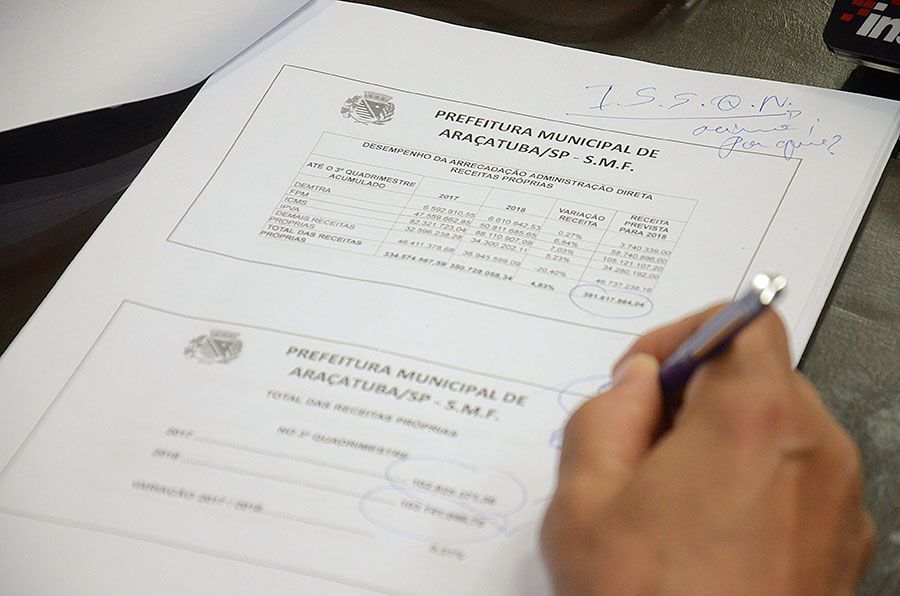 I.S.S.Q.N.
por que?
PREFEITURA MUNICIPAL DE
ARAÇATUBA/SP - S.M.F.
DESEMPENHO DA ARRECADAÇÃO ADMINISTRAÇÃO DIRETA
RECEITAS PRÓPRIAS
ATÉ O 3º QUADRIMESTRE ACUMULADO 2017 2018 VARIAÇÃO RECEITA RECEITA PREVISTA PARA 2018
DEMTRA 6.592.910,55 6.610.642,53 0,27% 3.740.339,00
FPM 47.559.662,85 50.811.685,65 6,84% 58.740.898,00
ICMS 82.321.723,04 88.110.907,09 7,03% 105.121.107,20
IPVA 32.596.238,28 34.300.202,11 5,23% 34.280.192,00
DEMAIS RECEITAS PRÓPRIAS 46.411.378,68 36.945.599,09 -20,40% 46.737.238,16
TOTAL DAS RECEITAS PRÓPRIAS 334.574.667,59 350.729.058,34 4,83% 391.617.864,04
PREFEITURA MUNICIPAL DE
ARAÇATUBA/SP - S.M.F.
TOTAL DAS RECEITAS PRÓPRIAS
NO 3º QUADRIMESTRE
2017
2018
VARIAÇÃO 2017 / 2018